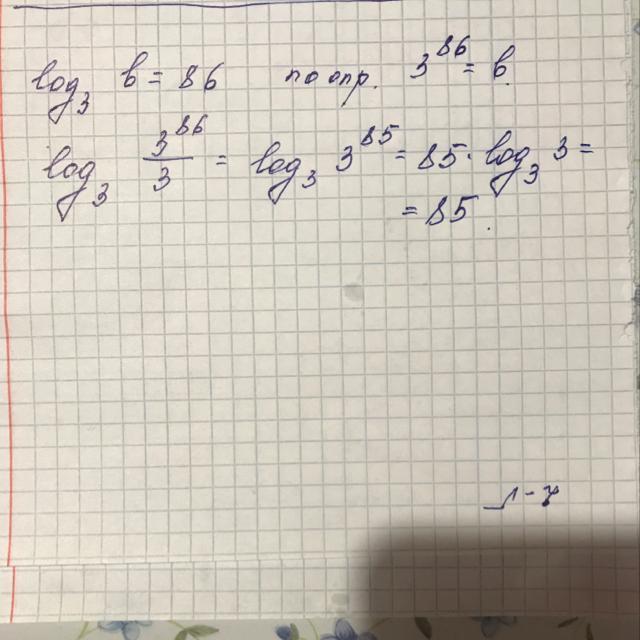 log₃ b = 86 по опр. 3⁸⁶ = b.
log₃ 3⁸⁶/3 = log₃ 3⁸⁵ = 85 · log₃ 3 =
= 85.